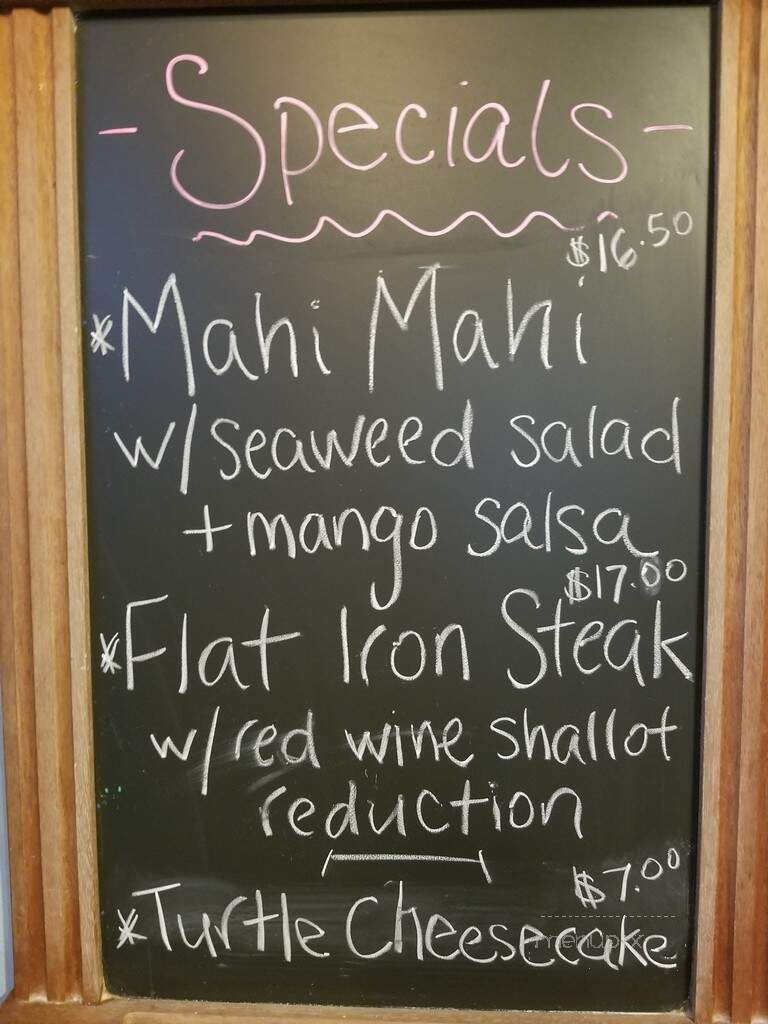 - Specials -
$16.50
*Mahi Mahi
w/seaweed salad
+ mango salsa
$17.00
*Flat Iron Steak
w/red wine shallot
reduction
$7.00
*Turtle Cheesecake